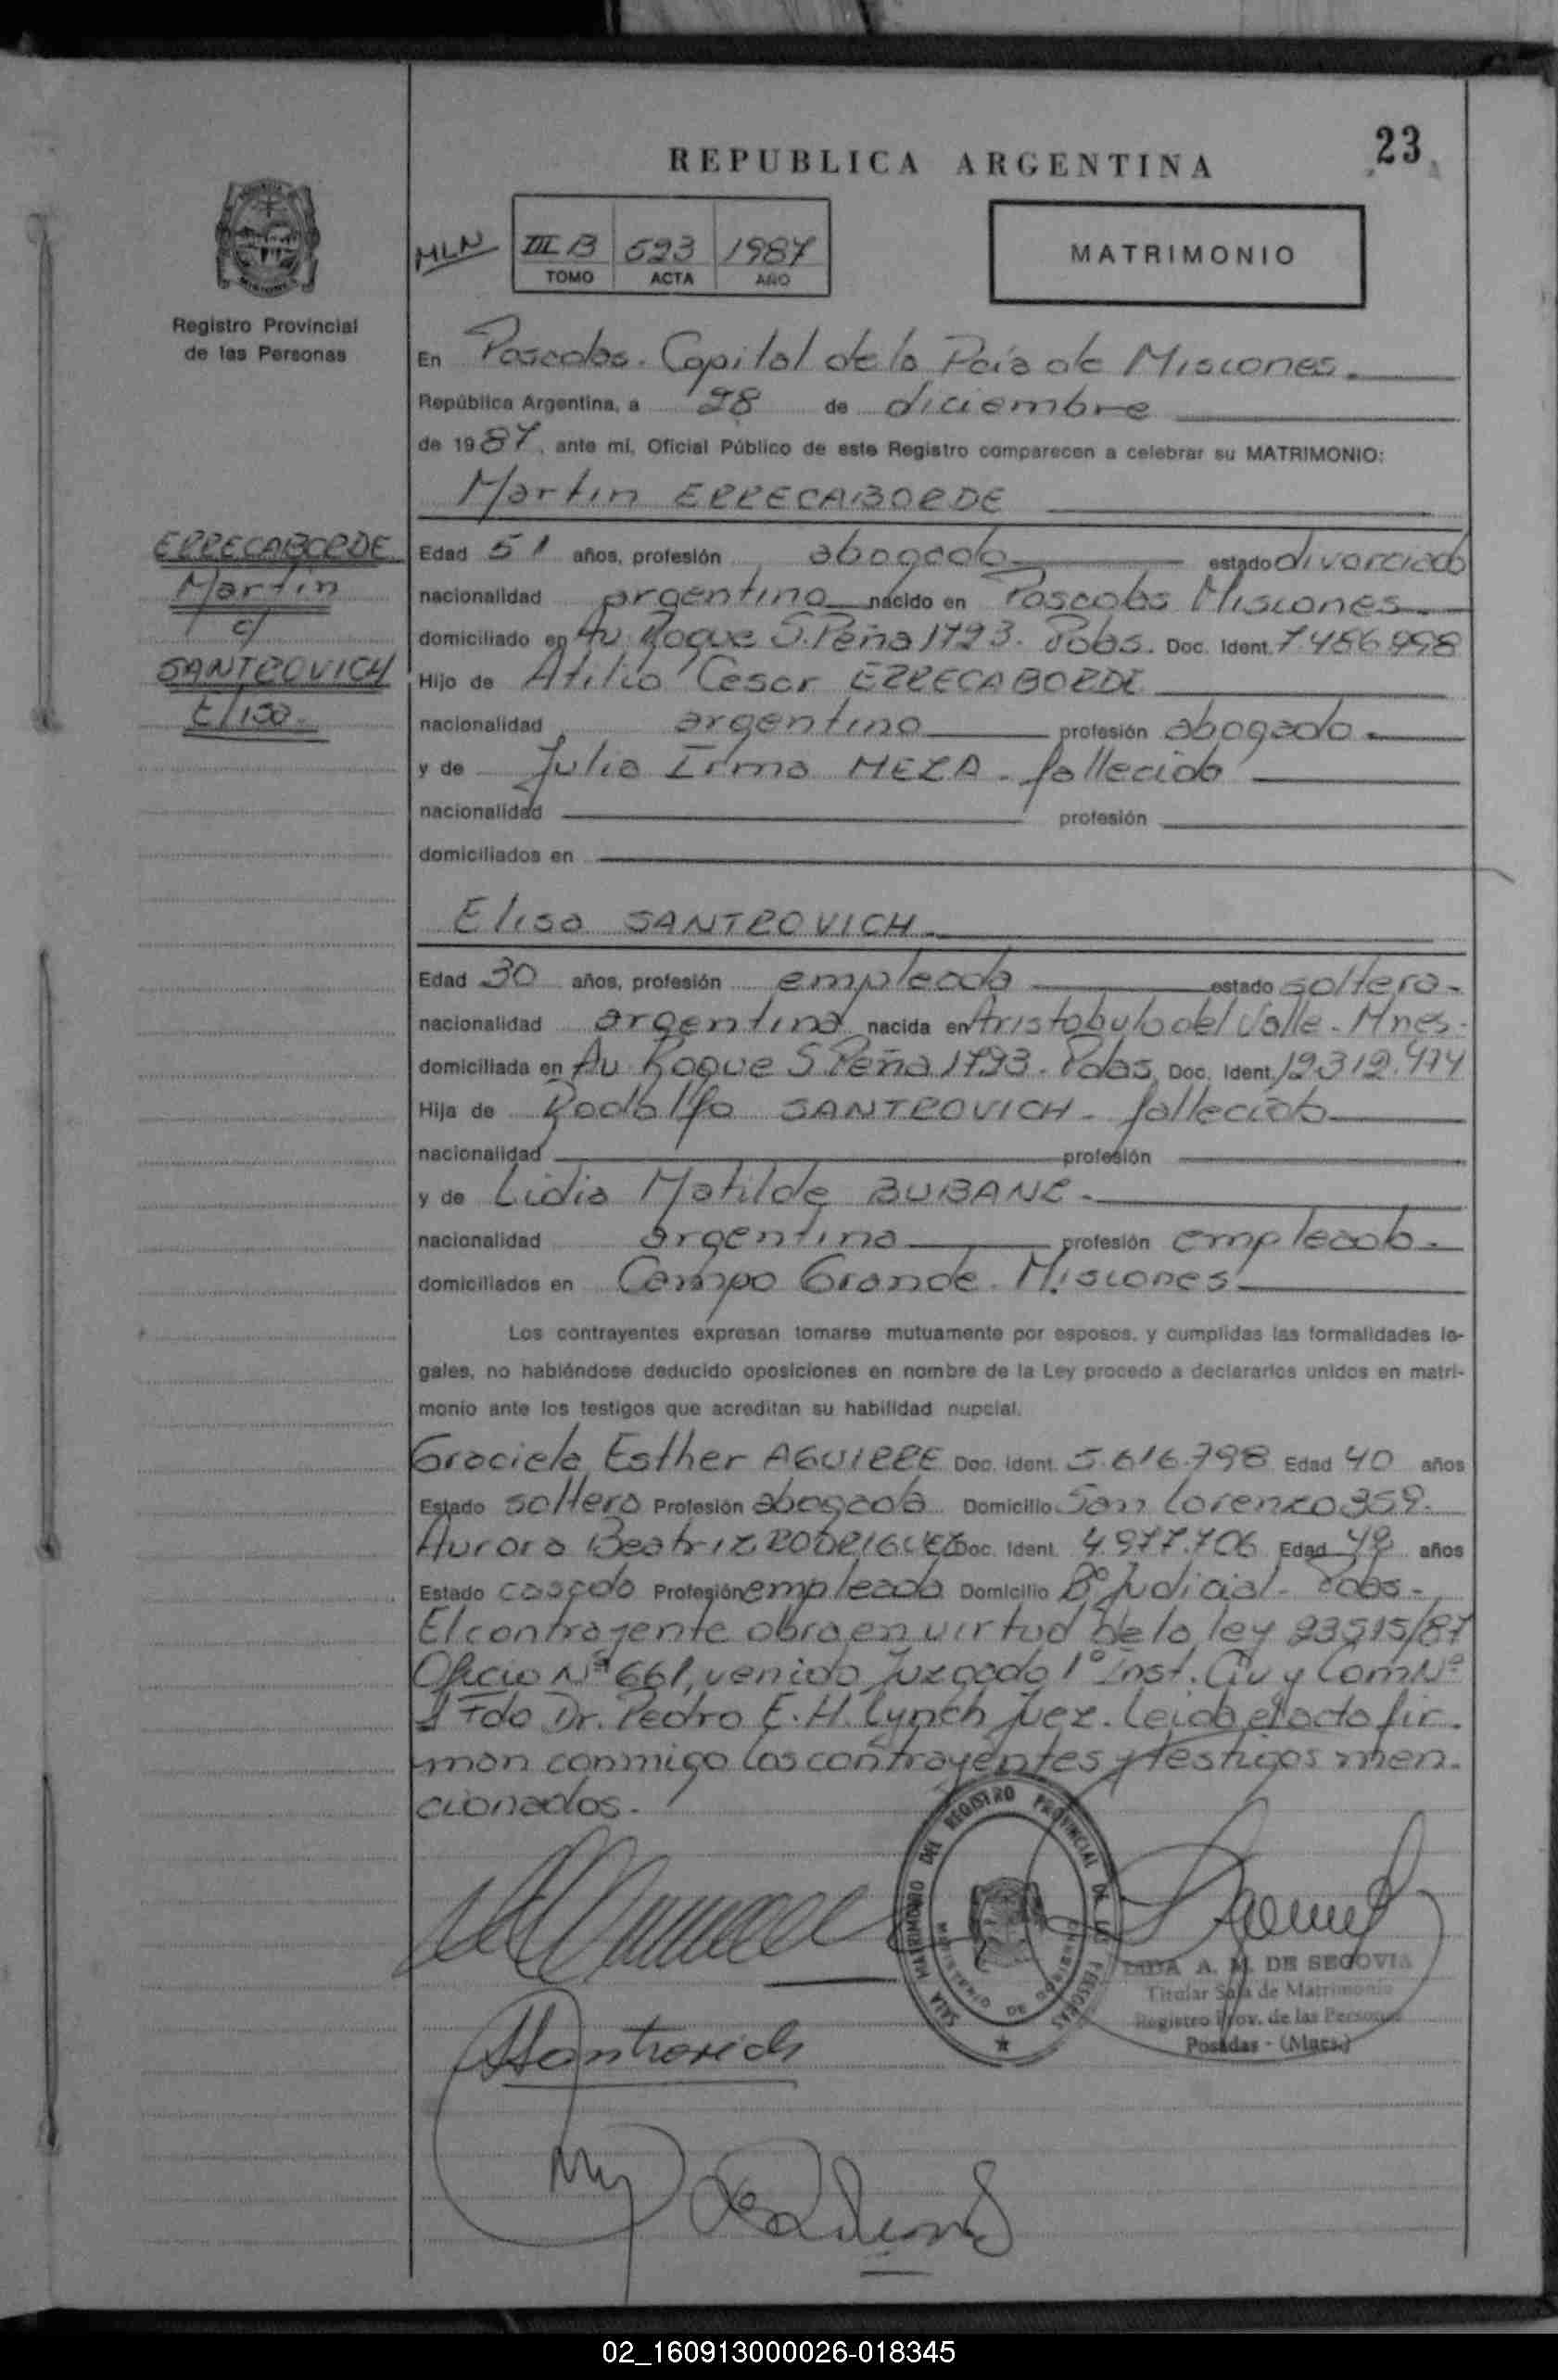 23
REPUBLICA ARGENTINA
MLN
III B 593 1987
TOMO ACTA AÑO
MATRIMONIO
Registro Provincial
de las Personas
En Posadas. Capital de la Pcia de Misiones.
República Argentina, a 28 de diciembre
de 1987, ante mí, Oficial Público de este Registro comparecen a celebrar su MATRIMONIO:
Martin ERRECABORDE
ERRECABORDE
Martin
c/
SANTROVICH
Elisa.
Edad 51 años, profesión abogado estado divorciado
nacionalidad argentina nacido en Posadas Misiones.
domiciliado en Av. Roque S. Peña 1793. Pdas. Doc. Ident. 7.486.998
Hijo de Atilio Cesar ERRECABORDE
nacionalidad argentina profesión abogado.
y de Julia Irma MEZA. fallecida
nacionalidad profesión
domiciliados en
Elisa SANTROVICH.
Edad 30 años, profesión empleada estado soltera.
nacionalidad argentina nacida en Aristobulo del Valle. Mnes.
domiciliada en Av Roque S. Peña 1793. Pdas. Doc. Ident. 12.312.414
Hija de Rodolfo SANTROVICH. fallecido
nacionalidad profesión
y de Lidia Matilde BUBANZ.
nacionalidad argentina profesión empleada.
domiciliados en Campo Grande. Misiones
Los contrayentes expresan tomarse mutuamente por esposos, y cumplidas las formalidades le-
gales, no habiéndose deducido oposiciones en nombre de la Ley procedo a declararlos unidos en matri-
monio ante los testigos que acreditan su habilidad nupcial.
Graciela Esther AGUIRRE Doc. Ident. 5.616.798 Edad 40 años
Estado soltera Profesión abogada Domicilio San Lorenzo 359.
Aurora Beatriz RODRIGUEZ Doc. Ident. 4.977.706 Edad años
Estado casada Profesión empleada Domicilio Bº Judicial. Pdas.
El contrayente obra en virtud de la ley 23515/87
Oficio Nº 661, venido Juzgado 1º Inst. Civ y Com Nº
1 Fdo Dr. Pedro E. H. Lynch Juez. Leida el acta fir.
man conmigo los contrayentes y testigos men.
cionados.
SALA MATRIMONIO DEL REGISTRO PROVINCIAL DE LAS PERSONAS
MINISTERIO DE GOBIERNO
A. M. DE SEGOVIA
Titular Sala de Matrimonio
Registro Prov. de las Personas
Posadas - (Mnes.)
Santrovich
02_160913000026-018345